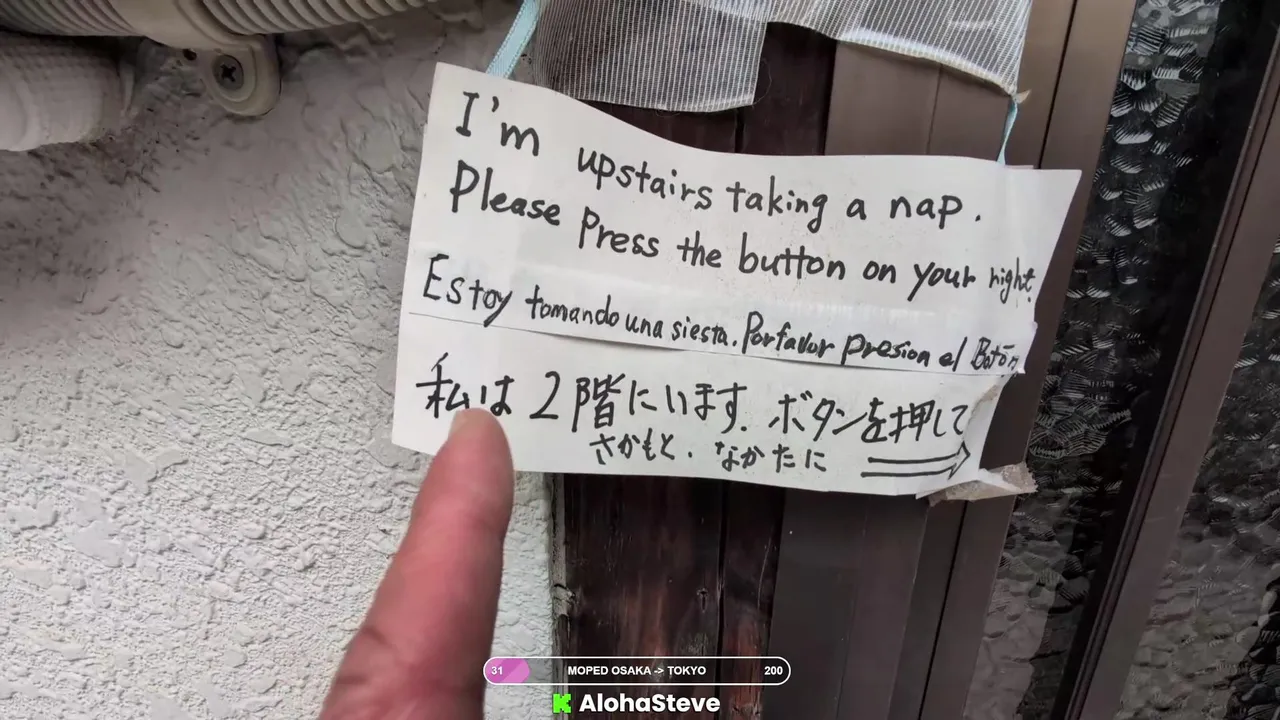 I'm upstairs taking a nap.
Please Press the button on your right.
Estoy tomando una siesta. Porfavor Presion el Botōn
私は2階にいます. ボタンを押して
さかもと. なかたに
31 MOPED OSAKA -> TOKYO 200
AlohaSteve